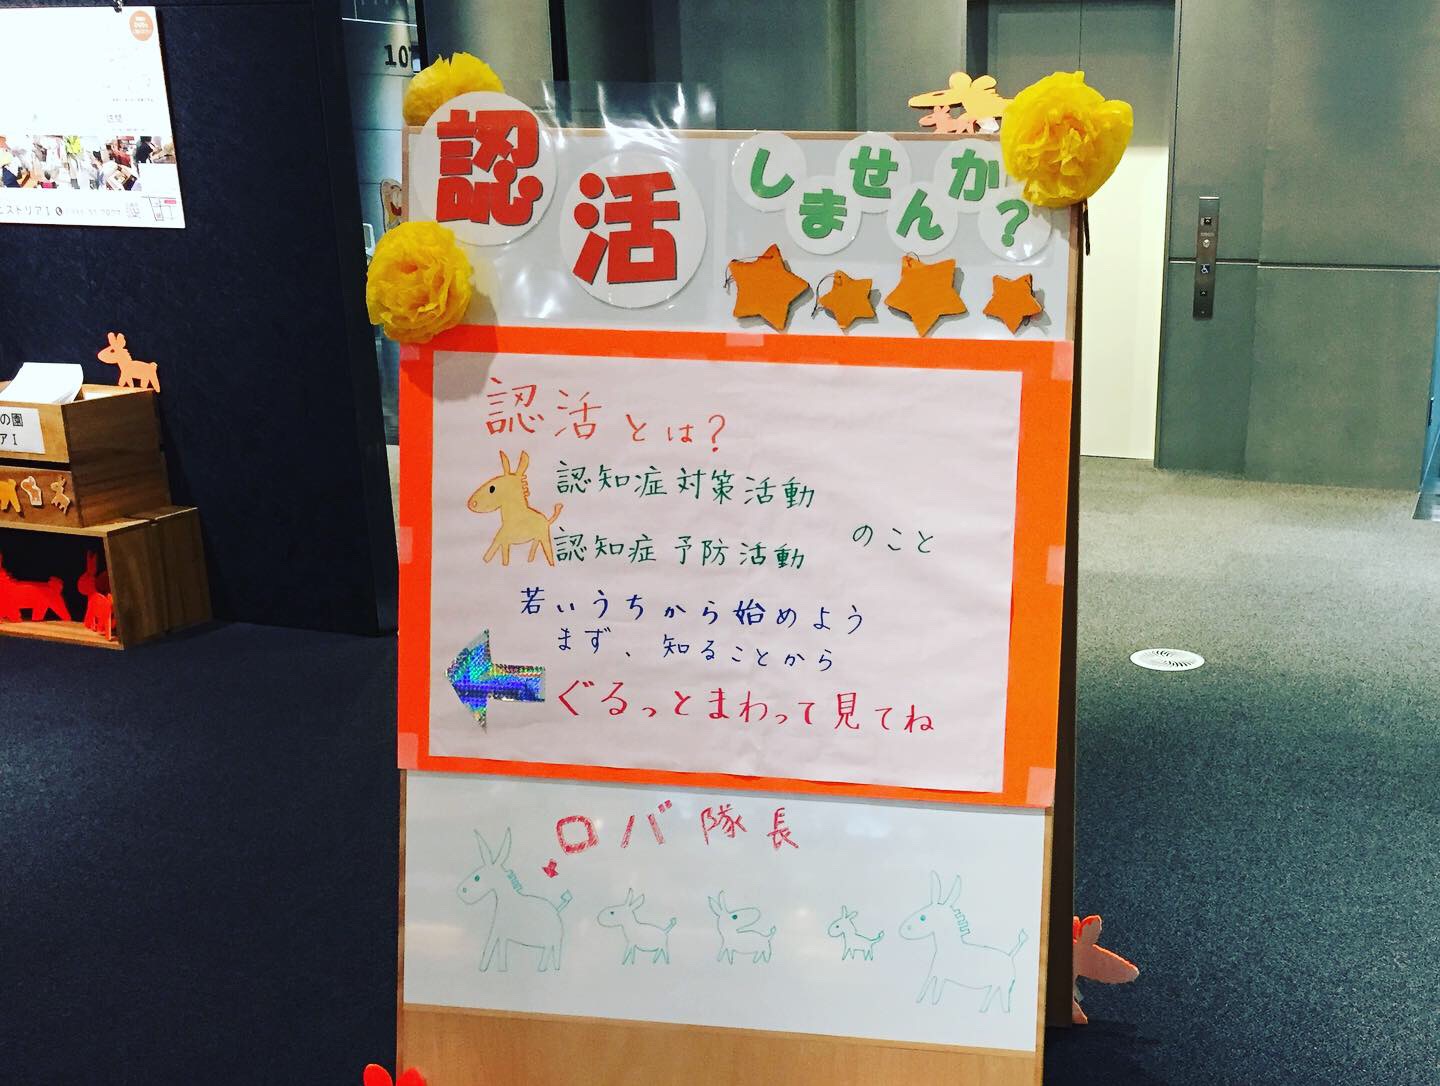 認活
しませんか?
認活とは?
認知症対策活動
認知症予防活動
のこと
若いうちから始めよう
まず、知ることから
ぐるっとまわって見てね
ロバ隊長
107
訪問
ストリア I
の園
ア I